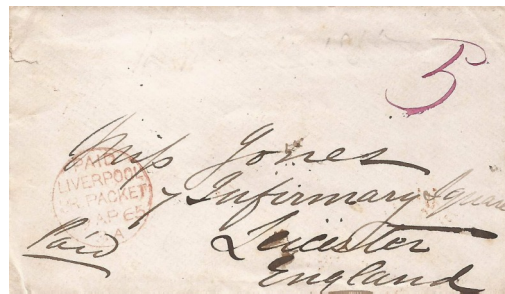 5
Miss Jones
7 Infirmary Square
Leicester
England
Paid
PAID
LIVERPOOL
BR. PACKET
AP 65